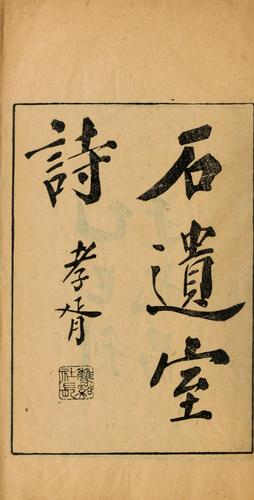 石遺室
詩
孝胥